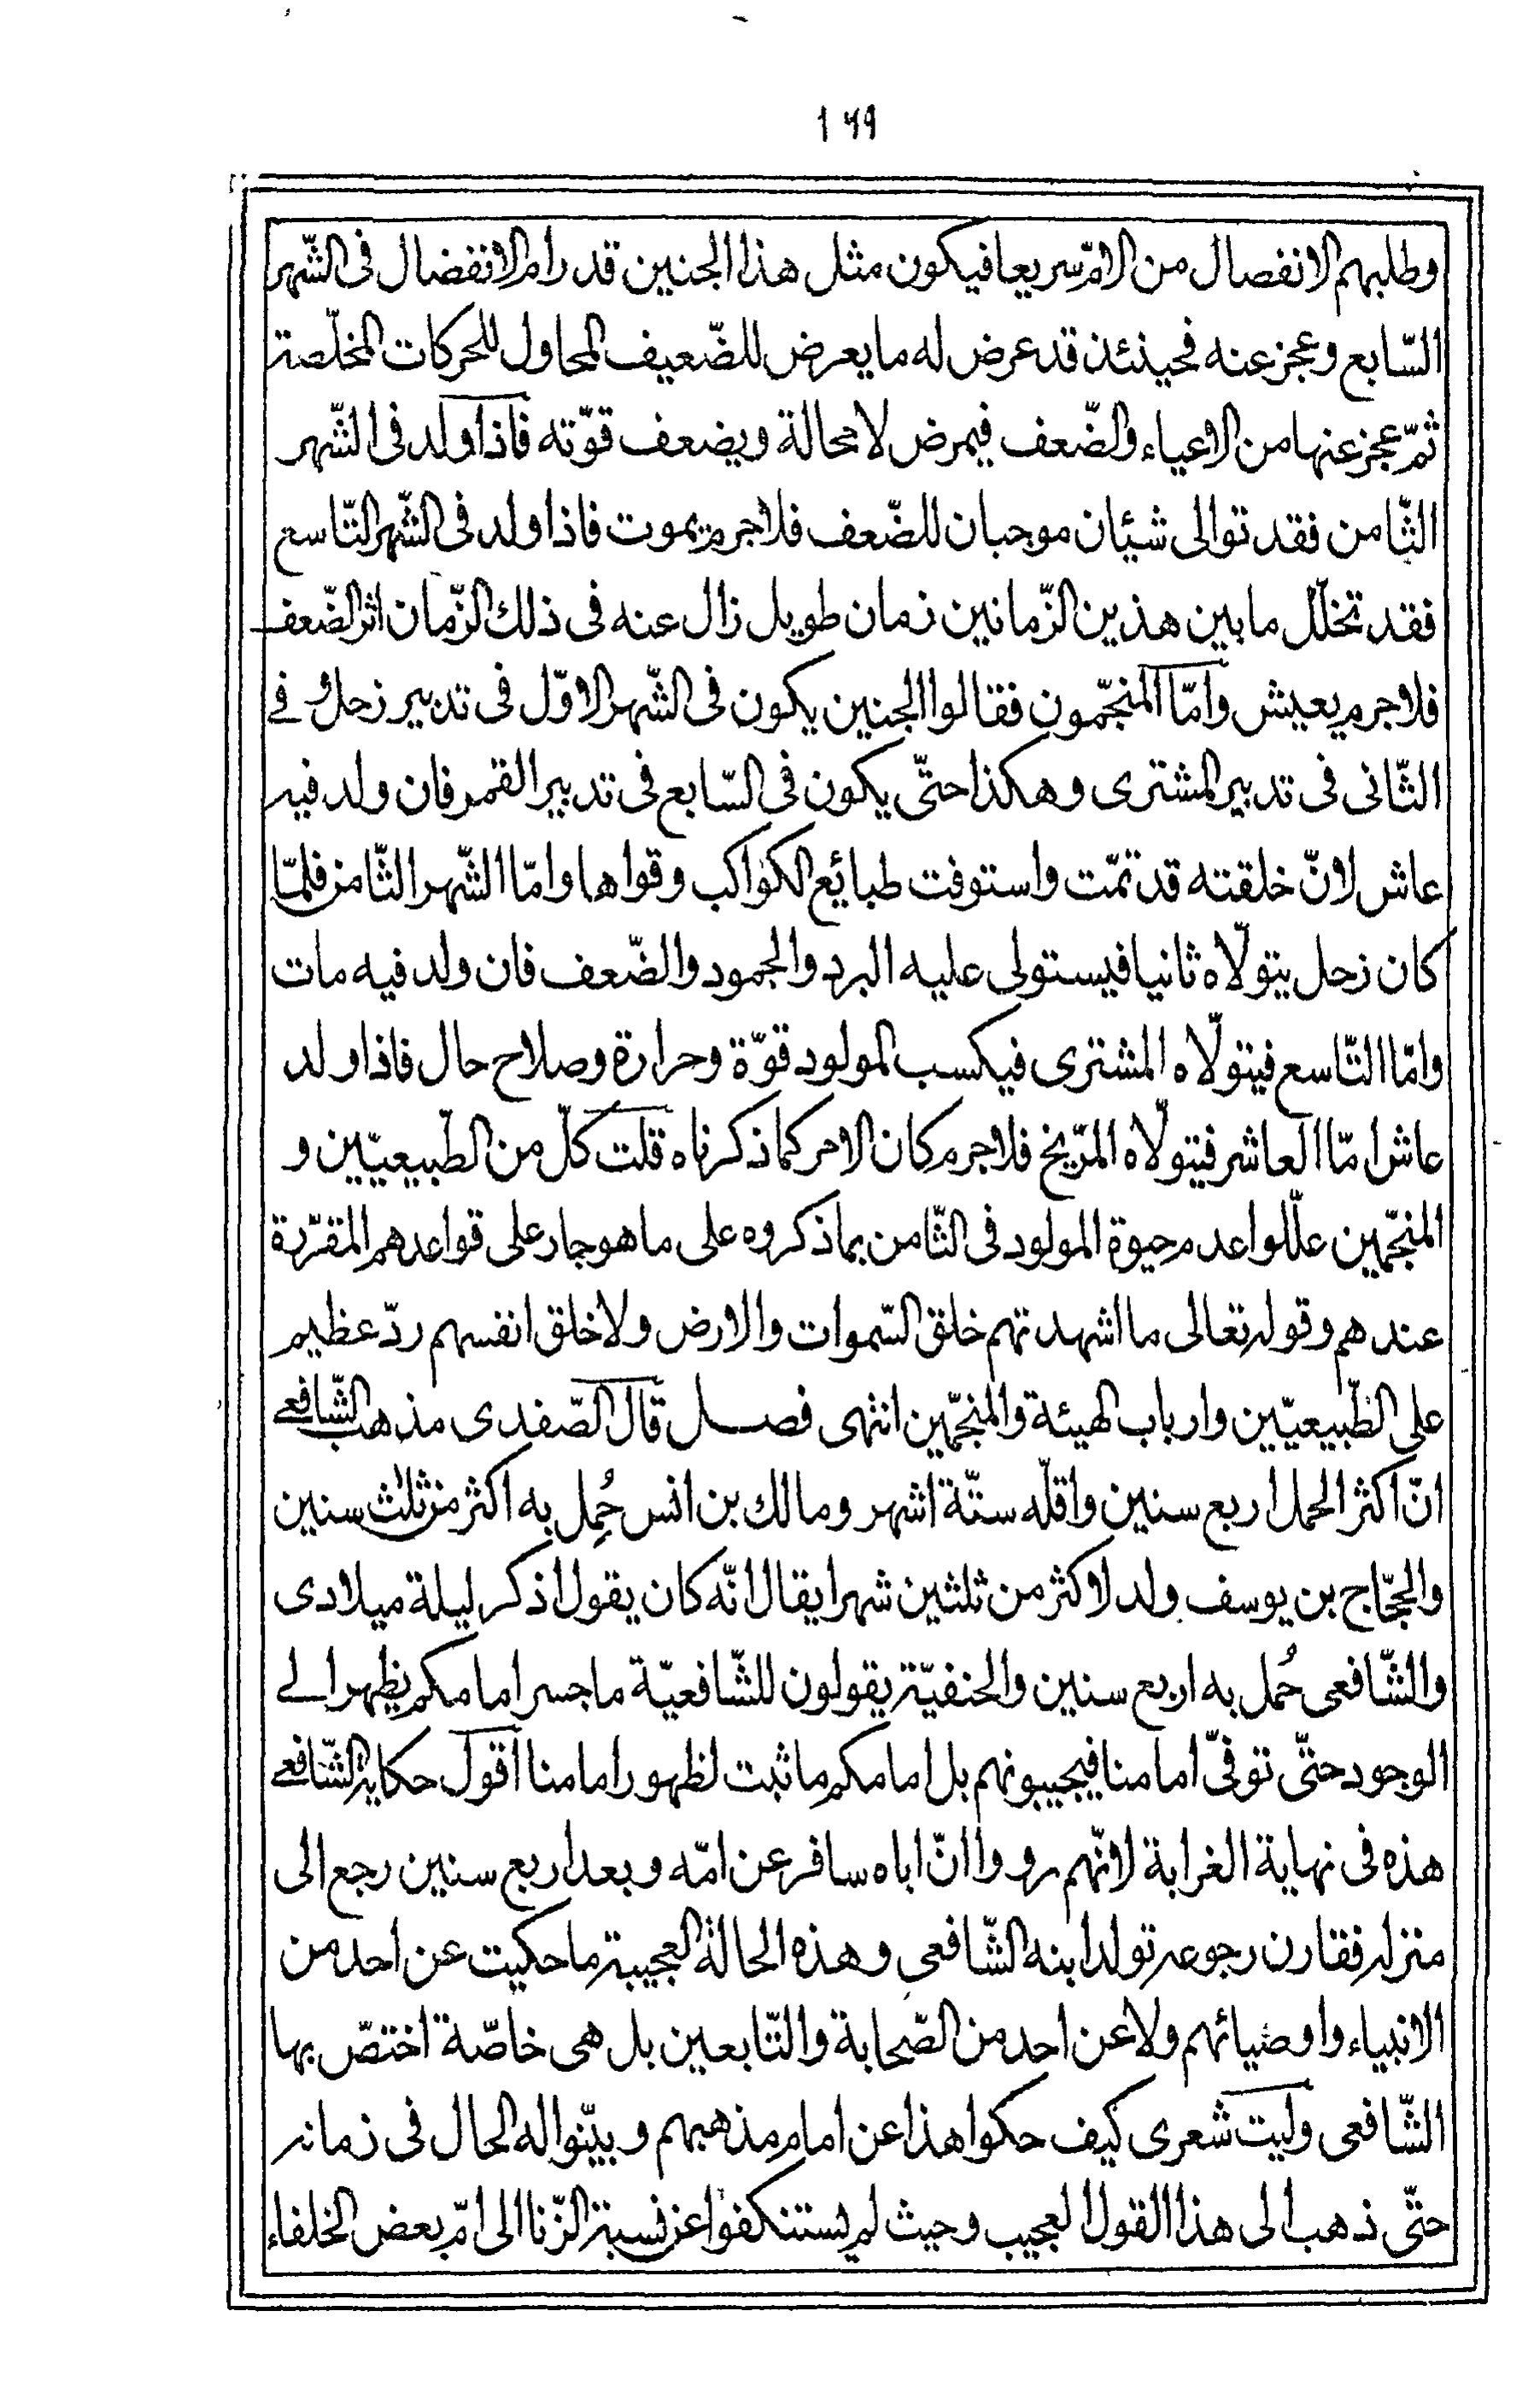 ١٦٩
وطلبهم الانفصال من الامّ سريعا فيكون مثل هذا الجنين قد رام الانفضال فى الشّهر
السّابع وعجز عنه فحينئذ قد عرض له ما يعرض للضّعيف المحاول للحركات المخلّصة
ثمّ عجز عنها من الاعياء والضّعف فيمرض لا محالة ويضعف قوّته فاذا ولد فى الشّهر
الثّامن فقد توالى شيئان موجبان للضّعف فلاجرم يموت فاذا ولد فى الشّهر التّاسع
فقد تخلّل ما بين هذين الزّمانين زمان طويل زال عنه فى ذلك الزّمان اثر الضّعف
فلاجرم يعيش وامّا المنجّمون فقالوا الجنين يكون فى الشّهر الاوّل فى تدبير زحل و فے
الثّانى فى تدبير المشترى وهكذا حتّى يكون فى السّابع فى تدبير القمر فان ولد فيه
عاش لانّ خلقته قد تمّت واستوفت طبائع الكواكب وقواها وامّا الشّهر الثّامن فلمّا
كان زحل يتولّاه ثانيا فيستولى عليه البرد والجمود والضّعف فان ولد فيه مات
وامّا التّاسع فيتولّاه المشترى فيكسب المولود قوّة وحرارة وصلاح حال فاذا ولد
عاش امّا العاشر فيتولّاه المرّيخ فلاجرم كان الامر كما ذكرناه قلت كلّ من الطّبيعيّين و
المنجّمين علّلوا عدم حيوة المولود فى الثّامن بما ذكروه على ما هو جار على قواعدهم المقرّرة
عندهم وقوله تعالى ما اشهدتهم خلق السّموات والارض ولا خلق انفسهم ردّ عظيم
على الطّبيعيّين وارباب الهيئة والمنجّمين انتهى فصل قال الصّفدى مذهب الشّافعے
انّ اكثر الحمل اربع سنين واقلّه ستّة اشهر ومالك بن انس حُمِل به اكثر من ثلاث سنين
والحجّاج بن يوسف ولد لاكثر من ثلثين شهرا يقال انّه كان يقول اذكر ليلة ميلادى
والشّافعى حُمل به اربع سنين والحنفيّة يقولون للشّافعيّة ما جسر امامكم يظهر الے
الوجود حتّى توفّى امامنا فيجيبونهم بل امامكم ما ثبت لظهور امامنا اقول حكاية الشّافعے
هذه فى نهاية الغرابة لانّهم رووا انّ اباه سافر عن امّه وبعد اربع سنين رجع الى
منزله فقارن رجوعه تولد ابنه الشّافعى وهذه الحالة العجيبة ما حكيت عن احد من
الانبياء واوصيائهم ولا عن احد من الصّحابة والتّابعين بل هى خاصّة اختصّ بها
الشّافعى وليت شعرى كيف حكوا هذا عن امام مذهبهم وبيّنوا له الحال فى زمانه
حتّى ذهب الى هذا القول العجيب وحيث لم يستنكفوا عن نسبة الزّنا الى امّ بعض الخلفاء